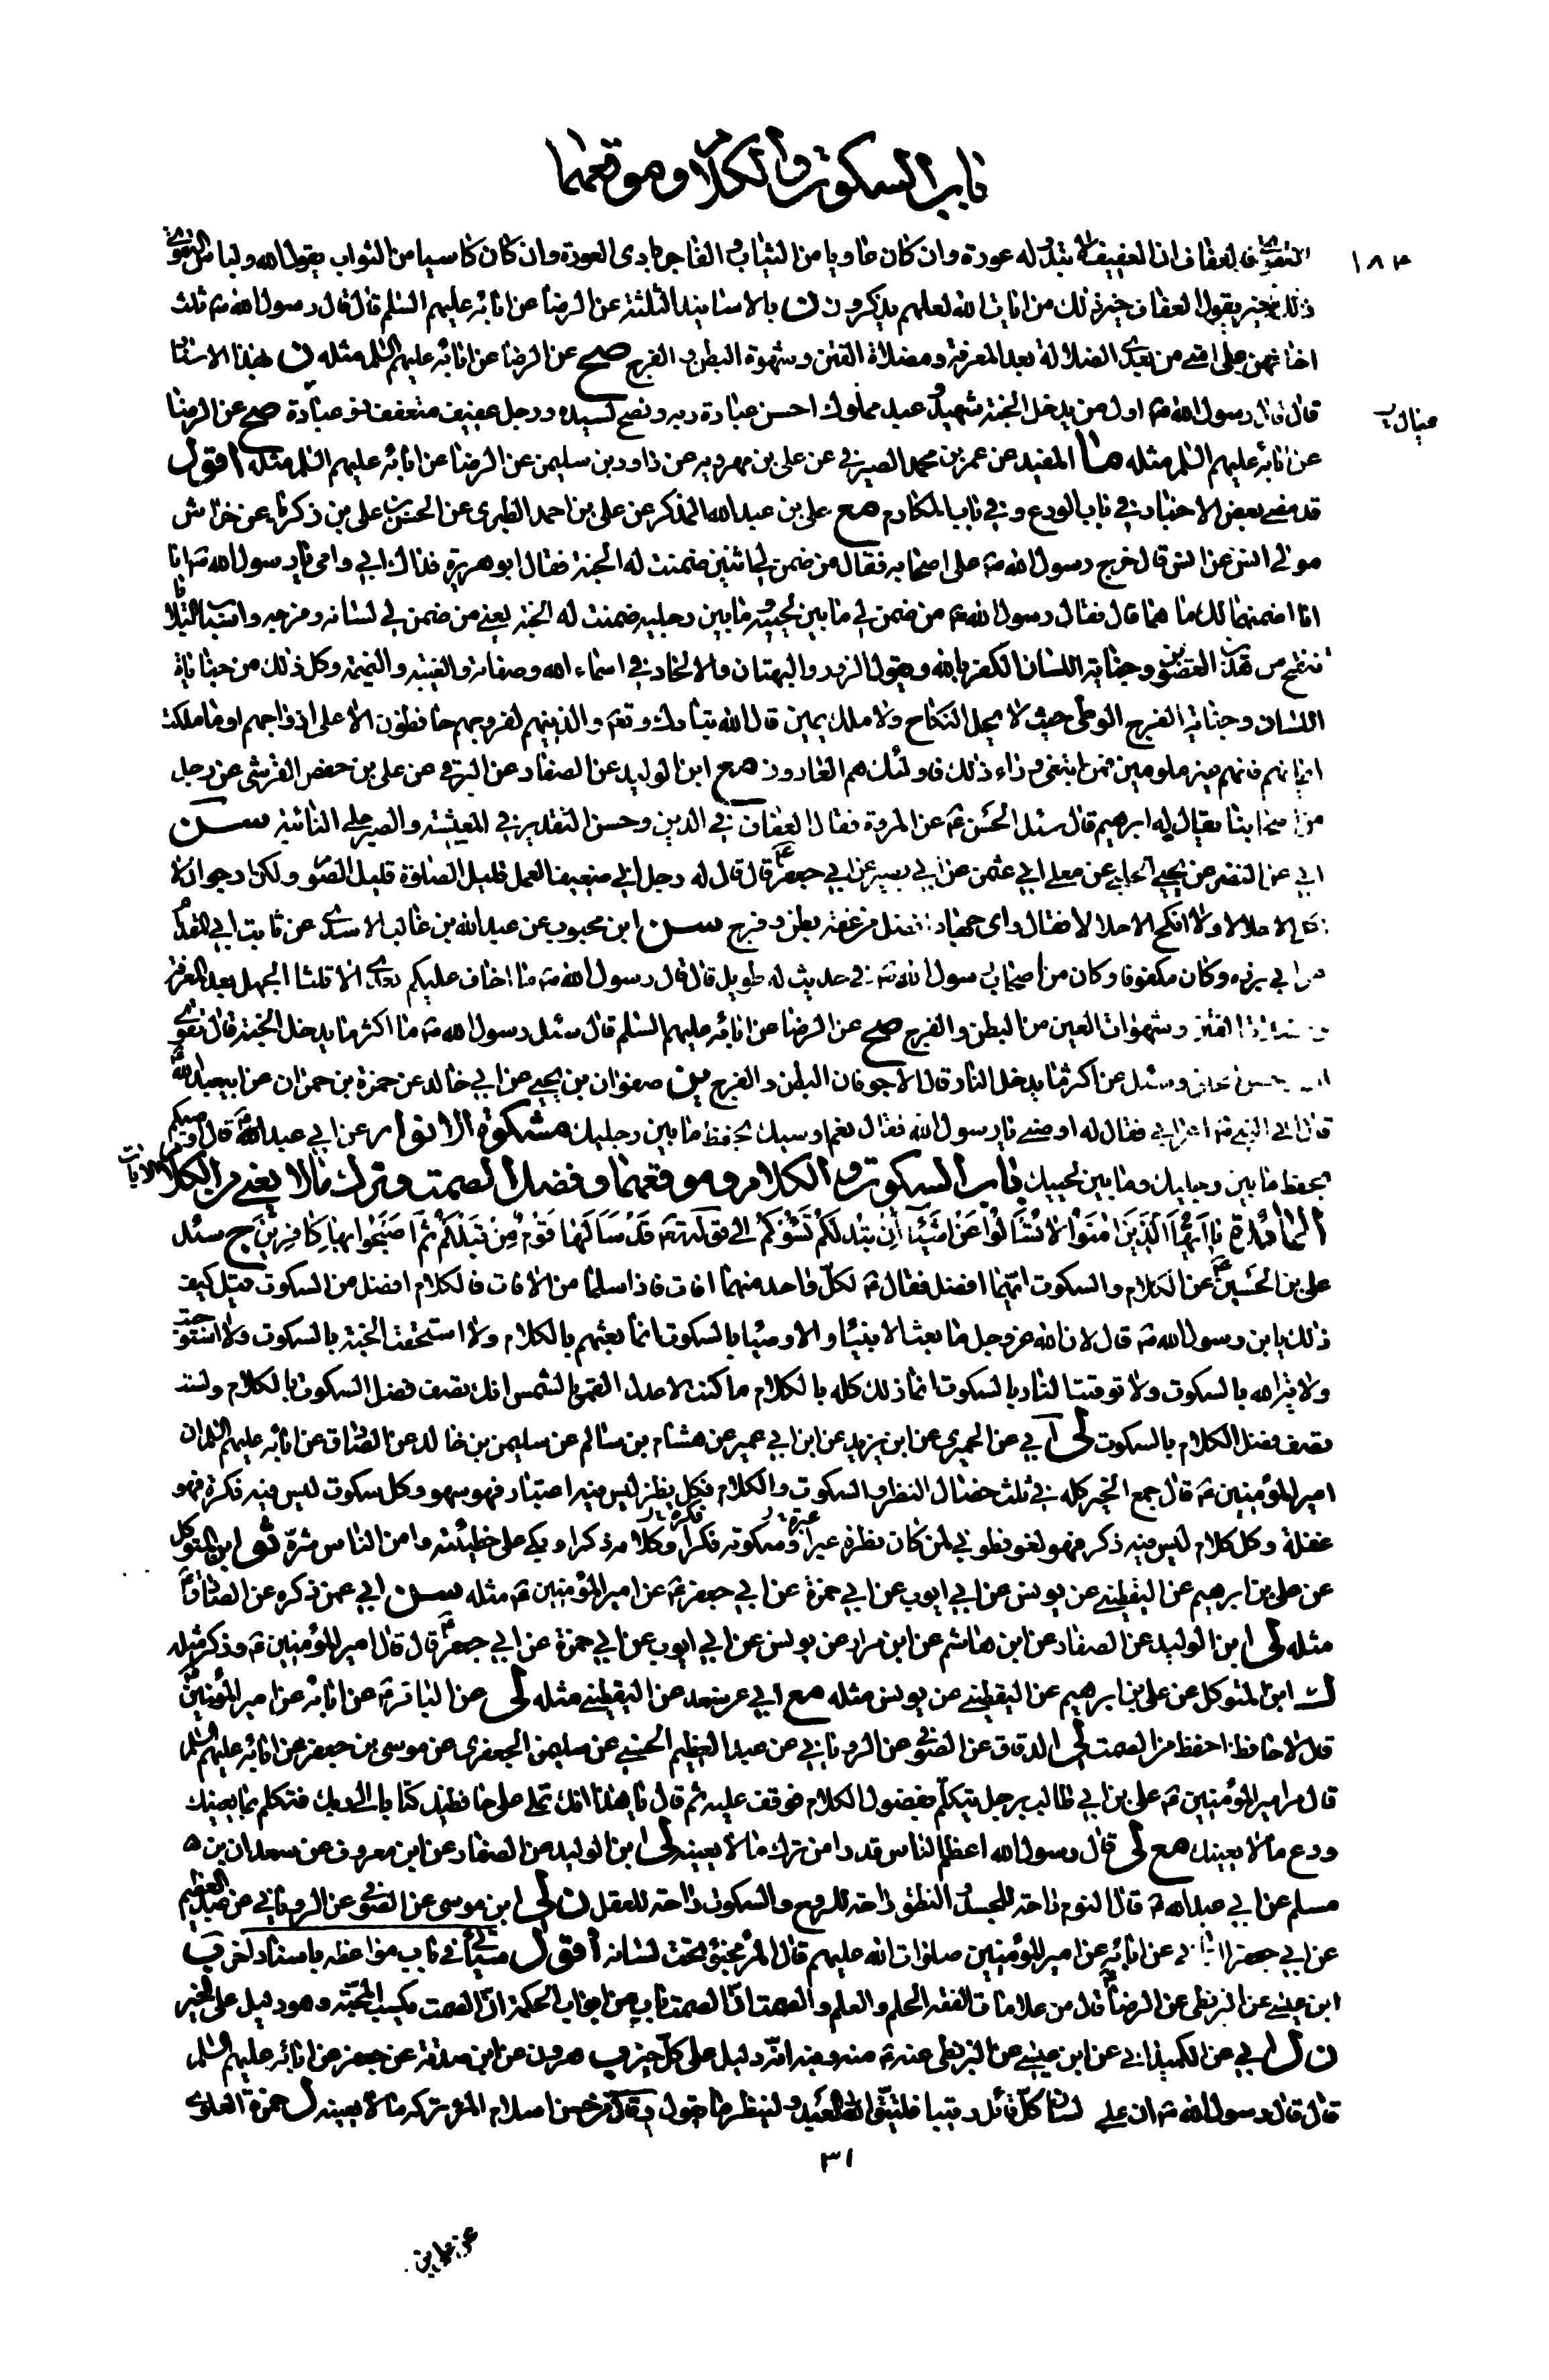 باب السكوت والكلام وموقعهما
١٨٤
التقوى فالعفاف ان العفيف لا تبدو له عورة وان كان عاريا من الثياب والفاجر بادى العورة وان كان كاسيا من الثياب يقول الله ولباس التقوى
ذلك خير يقول العفاف خير ذلك من ايات الله لعلهم يذكرون ن بالاسانيد الثلثة عن الرضا عن ابائه عليهم السلم قال قال رسول الله ص ثلث
اخافهن على امتى من بعدى الضلالة بعد المعرفة ومضلات الفتن وشهوة البطن و الفرج صح عن الرضا عن ابائه عليهم السلم مثله ن بهذا الاسناد
قال قال رسول الله ص اول من يدخل الجنة شهيد وعبد مملوك احسن عبادة ربه ونصح لسيده ورجل عفيف متعفف ذو عبادة صح عن الرضا
عيال ب
عن ابائه عليهم السلم مثله ما المفيد عن عمر بن محمد الصيرفي عن على بن مهرويه عن داود بن سليمن عن الرضا عن ابائه عليهم السلم مثله اقول
قد مضى بعض الاخبار في باب الورع و في باب المكارم مع على بن عبد الله المذكر عن على بن احمد الطبرى عن الحسن بن على بن زكريا عن خراش
مولى انس عن انس قال خرج رسول الله ص على اصحابه فقال من ضمن لي اثنين ضمنت له الجنة فقال ابو هريرة فداك ابي وامى يا رسول الله ص انا
انا اضمنهما لك ما هما قال فقال رسول الله ص من ضمن لي ما بين لحييه وما بين رجليه ضمنت له الجنة يعني من ضمن لي لسانه وفرجه واسباب البلايا
تنفتح من هذين العضوين وجناية اللسان الكفر بالله وقول الزور والبهتان والالحاد في اسماء الله وصفاته والغيبة والنميمة وكل ذلك من جناية
اللسان وجناية الفرج الوطى حيث لا يحل النكاح ولا ملك يمين قال الله تبارك وتعم والذين هم لفروجهم حافظون الا على ازواجهم او ما ملكت
ايمانهم فانهم غير ملومين فمن ابتغى وراء ذلك فاولئك هم العادون مع ابن الوليد عن الصفار عن البرقى عن على بن حفص القرشى عن رجل
من اصحابنا يقال له ابرهيم قال سئل الحسن ع عن المروة فقال العفاف في الدين وحسن التقدير في المعيشة والصبر على النائبة سن
ابي عن النضر عن يحيى الحلبي عن معلى ابي عثمن عن ابي بصير عن ابي جعفر ع قال قال له رجل اني ضعيف العمل قليل الصلوة قليل الصوم ولكن ارجو ان لا
اكل الا حلالا ولا انكح الا حلالا فقال واى جهاد افضل من عفة بطن وفرج سن ابن محبوب عن عبد الله بن غالب الاسدى عن ثابت ابي المقدام
عن ابي برزه وكان مكفوفا وكان من اصحاب رسول الله ص في حديث له طويل قال قال رسول الله ص ما اخاف عليكم بعدى الا ثلثا الجهل بعد المعرفة
ومضلات الفتن وشهوات العين من البطن والفرج صح عن الرضا عن ابائه عليهم السلم قال سئل رسول الله ص ما اكثر ما يدخل الجنة قال تقوى
الله وحسن الخلق وسئل عن اكثر ما يدخل النار قال الاجوفان البطن والفرج ين صفوان بن يحيى عن ابي خالد عن حمزة بن حمران عن ابيعبد الله ع
قال اتى النبي ص اعرابي فقال له اوصني يا رسول الله فقال نعم اوصيك بحفظ ما بين رجليك مشكوة الانوار عن ابي عبد الله ع قال اوصيكم
بحفظ ما بين رجليك وما بين لحييك باب السكوت والكلام وموقعهما وفضل الصمت وترك ما لا يعني من الكلام الايات
المائدة ع يا ايها الذين امنوا لا تسئلوا عن اشياء ان تبدلكم تسؤكم الى قوله تعم قد سالها قوم من قبلكم ثم اصبحوا بها كافرين ج سئل
على بن الحسين ع عن الكلام والسكوت ايهما افضل فقال ع لكل واحد منهما افات فاذا سلما من الافات فالكلام افضل من السكوت قيل كيف
ذلك يا بن رسول الله ص قال لان الله عز وجل ما بعث الانبياء والاوصياء بالسكوت انما بعثهم بالكلام ولا استحقت الجنة بالسكوت ولا استوجبت
ولاية الله بالسكوت ولا توقيت النار بالسكوت انما ذلك كله بالكلام ما كنت لاعدل القمر بالشمس انك تصف فضل السكوت بالكلام ولست
تصف فضل الكلام بالسكوت لى ابي عن الحميرى عن ابن يزيد عن ابن ابي عمير عن هشام بن سالم عن سليمن بن خالد عن الصادق عن ابائه عليهم السلم ان
امير المؤمنين ع قال جمع الخير كله في ثلث خصال النظر والسكوت والكلام فكل نظر ليس فيه اعتبار فهو سهو وكل سكوت ليس فيه فكرة فهو
غفلة وكل كلام ليس فيه ذكر فهو لغو فطوبي لمن كان نظره عبرا وسكوته فكرا وكلامه ذكرا وبكى على خطيئته وامن الناس شره ثو ابن المتوكل
عبرة ل فكرة ل
عن على بن ابرهيم عن اليقطيني عن يونس عن ابي ايوب عن ابي حمزة عن ابي جعفر ع عن امير المؤمنين ع مثله سن ابي عمن ذكره عن الصادق ع
مثله لى ابن الوليد عن الصفار عن ابن هاشم عن ابن مرار عن يونس عن ابي ايوب عن ابي حمزة عن ابي جعفر ع قال قال امير المؤمنين ع وذكر مثله
ل ابن المتوكل عن على بن ابرهيم عن اليقطيني عن يونس مثله مع ابي عن سعد عن اليقطيني مثله لى عن الباقر ع عن ابائه عن امير المؤمنين ع
قال لا حافظ احفظ من الصمت لى الدقاق عن الصوفى عن الروياني عن عبد العظيم الحسني عن سليمن الجعفرى عن موسى بن جعفر عن ابائه عليهم السلم
قال مر امير المؤمنين ع على بن ابي طالب برجل يتكلم بفضول الكلام فوقف عليه ثم قال يا هذا انك تملى على حافظيك كتابا الى ربك فتكلم بما يعنيك
ودع ما لا يعنيك مع لى قال رسول الله اعظم الناس قدرا من ترك ما لا يعنيه لى ابن الوليد عن الصفار عن ابن معروف عن سعدان بن ه
مسلم عن ابي عبد الله ع قال النوم راحة للجسد والنطق راحة للروح والسكوت راحة للعقل ن لى ابن موسى عن الصوفى عن الروياني عن عبد العظيم
عن ابي جعفر الثاني عن ابائه عن امير المؤمنين صلوات الله عليهم قال المرء مخبؤ تحت لسانه اقول سيأتي في باب مواعظه باسناد اخر ب
ابن عيسى عن البزنطى عن الرضا ع قال من علامات الفقه الحلم والعلم والصمت ان الصمت باب من ابواب الحكمة ان الصمت يكسب المحبة وهو دليل على الخير
ن ل ابي عن الكميذاني عن ابن عيسى عن البزنطى عنه ع مثله وفيه انه دليل على كل خير ب هرون عن ابن صدقة عن جعفر عن ابائه عليهم السلم
قال قال رسول الله ص ان على لسان كل قائل رقيبا فليتق الله العبد ولينظر ما يقول وقال من حسن اسلام المرء تركه ما لا يعنيه ل حمزة العلوى
٣١
عن على بن